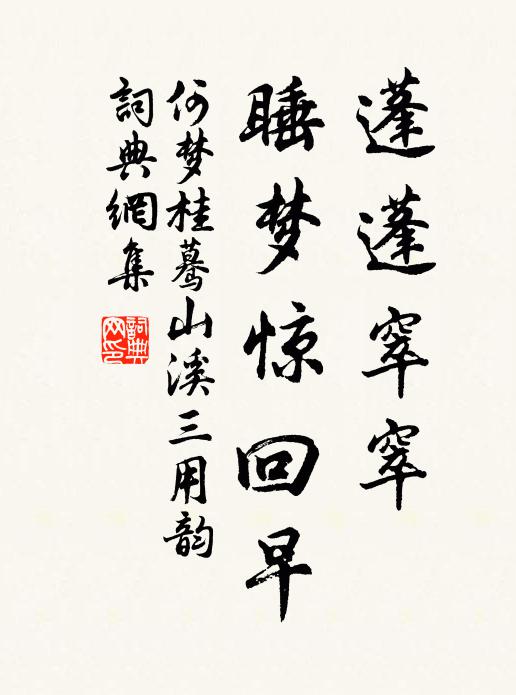 蓬蓬窣窣
睡梦惊回早
何梦桂蓦山溪三用韵
詞典網集
詞典网印